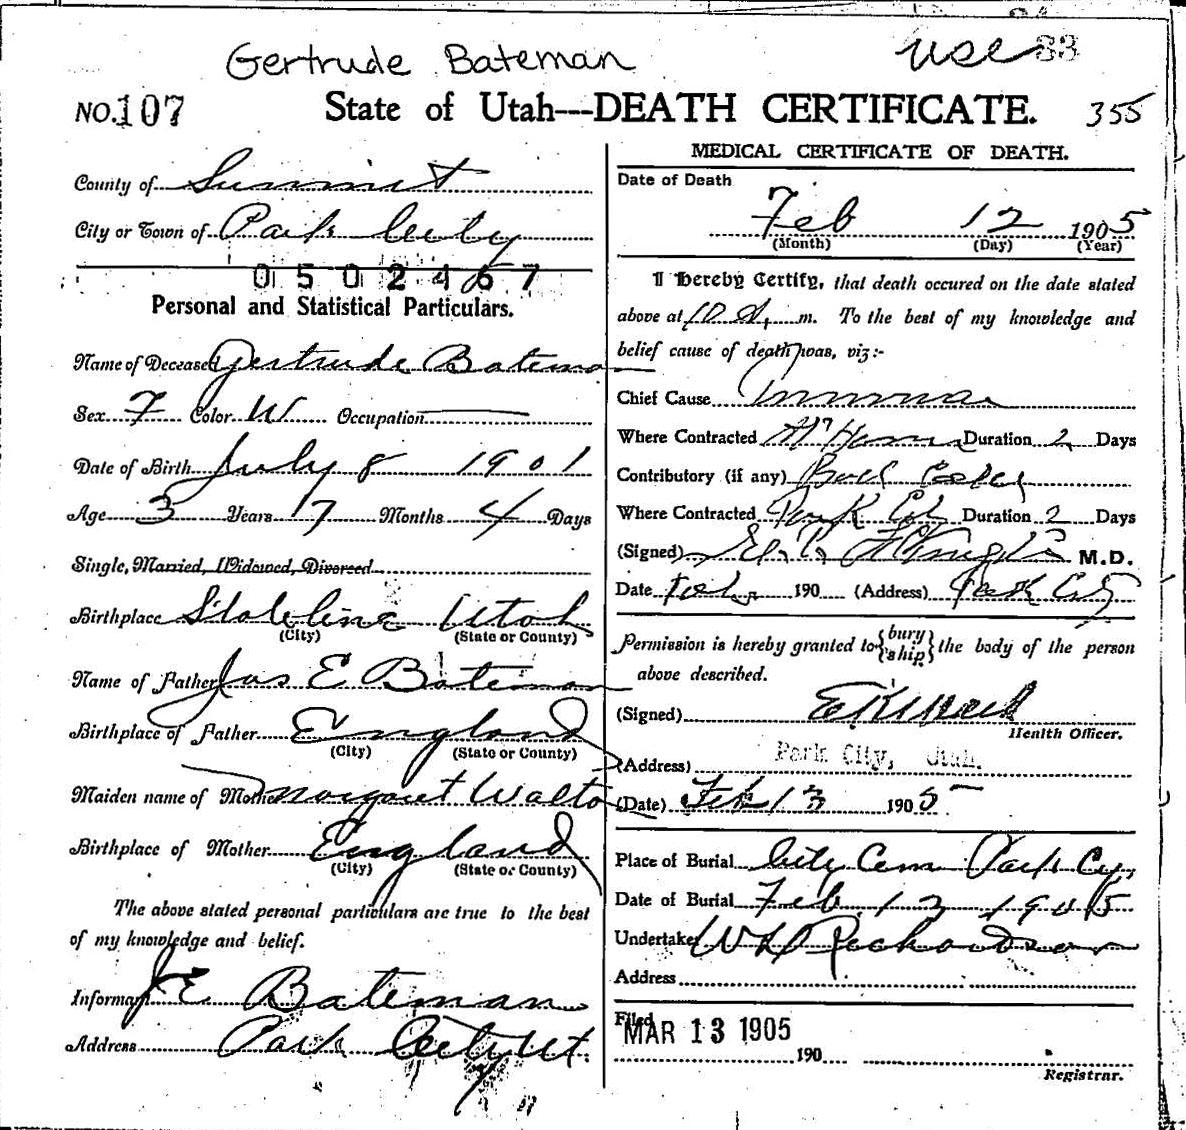 Gertrude Bateman
use 33
NO. 107
State of Utah---DEATH CERTIFICATE.
355
County of Summit
City or Town of Park City
0502467
Personal and Statistical Particulars.
Name of Deceased Gertrude Bateman
Sex F Color W Occupation
Date of Birth July 8 1901
Age 3 Years 7 Months 4 Days
Single, Married, Widowed, Divorced
Birthplace Stateline Utah
(City) (State or County)
Name of Father Jas E Bateman
Birthplace of Father England
(City) (State or County)
Maiden name of Mother Margaret Walto
Birthplace of Mother England
(City) (State or County)
The above stated personal particulars are true to the best
of my knowledge and belief.
Informant J E Bateman
Address Park City Ut.
MEDICAL CERTIFICATE OF DEATH.
Date of Death
Feb 12 1905
(Month) (Day) (Year)
I Hereby Certify, that death occured on the date stated
above at 10 A. m. To the best of my knowledge and
belief cause of death was, viz:-
Chief Cause
Where Contracted At Home Duration 2 Days
Contributory (if any)
Where Contracted Park City Duration 2 Days
(Signed) M.D.
Date Feb 190 (Address) Park City
Permission is hereby granted to {bury ship} the body of the person
above described.
(Signed)
Health Officer.
(Address) Park City, Utah.
(Date) Feb 13 1905
Place of Burial City Cem Park Cy,
Date of Burial Feb. 13 1905
Undertaker W D Richardson
Address
Filed
MAR 13 1905
190
Registrar.